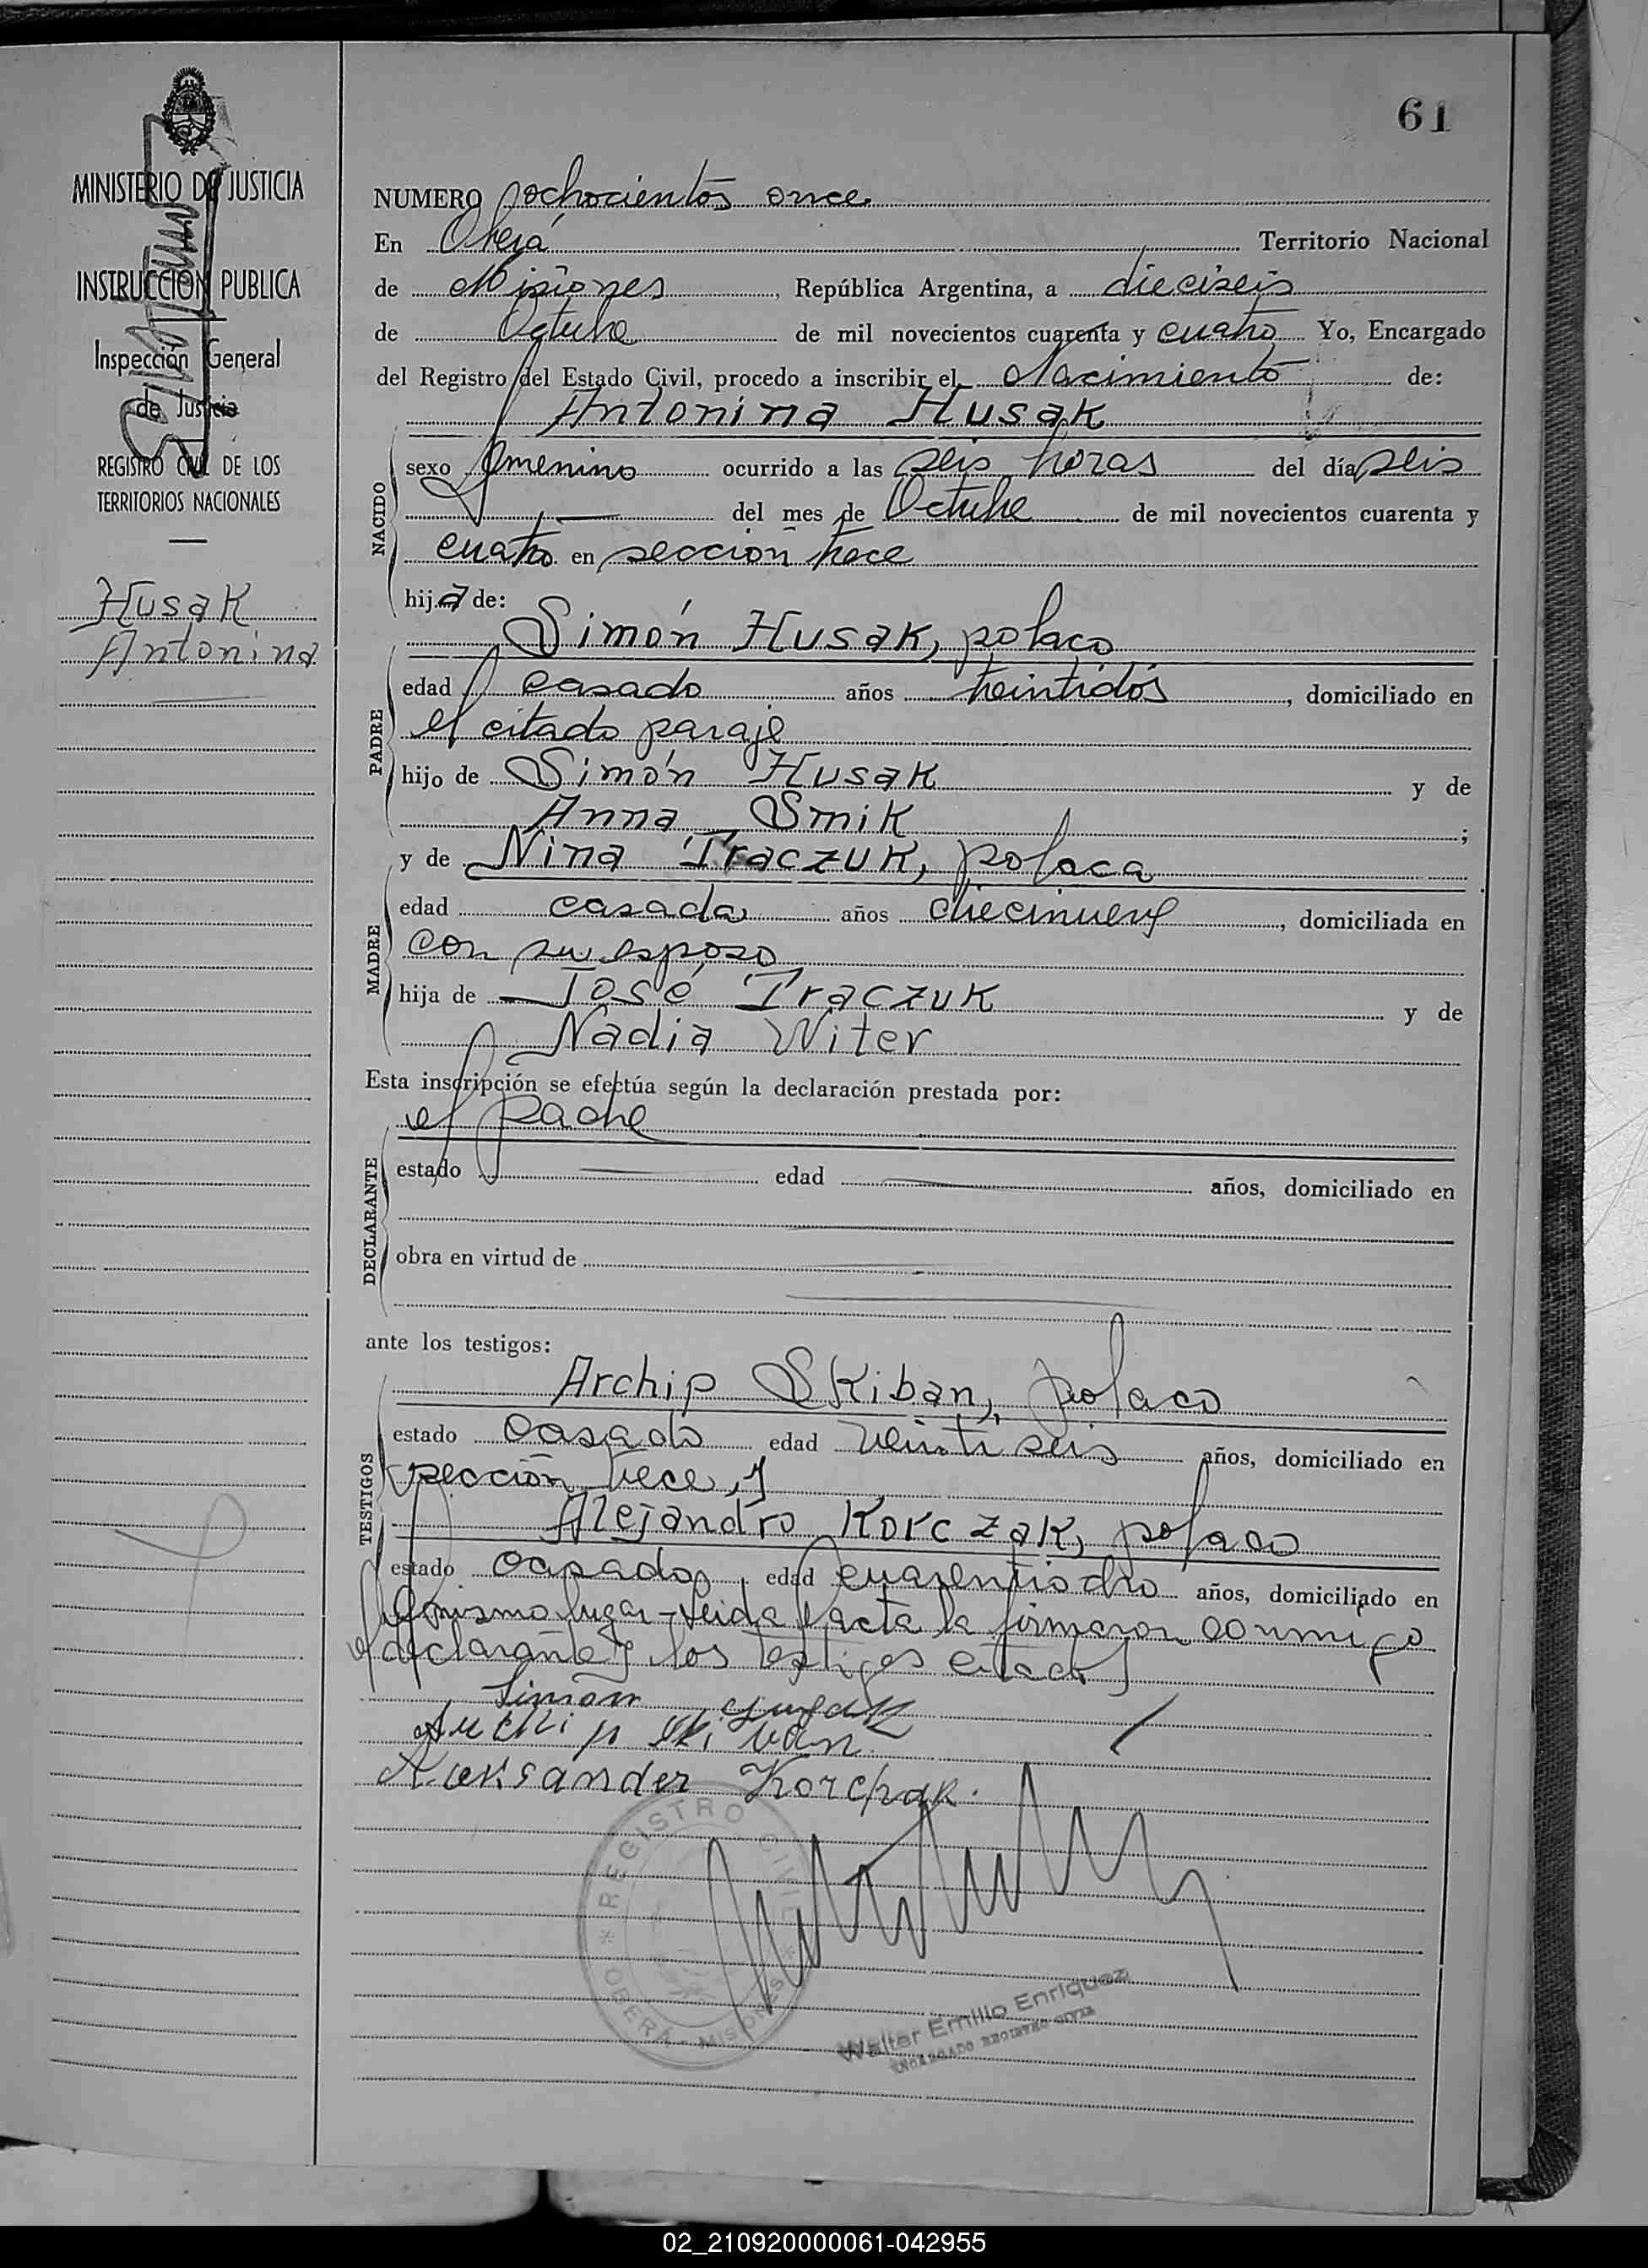 61
MINISTERIO DE JUSTICIA
INSTRUCCION PUBLICA
Inspección General
de Justicia
REGISTRO CIVIL DE LOS
TERRITORIOS NACIONALES
Husak
Antonina
NUMERO ochocientos once
En Oberá Territorio Nacional
de Misiones, República Argentina, a dieciseis
de Octubre de mil novecientos cuarenta y cuatro Yo, Encargado
del Registro del Estado Civil, procedo a inscribir el Nacimiento de:
Antonina Husak
NACIDO
sexo femenino ocurrido a las seis horas del día seis
del mes de Octubre de mil novecientos cuarenta y
cuatro en sección trece
hija de:
Simón Husak, polaco
PADRE
edad casado años treintidós, domiciliado en
el citado paraje
hijo de Simón Husak y de
Anna Smik;
y de Nina Traczuk, polaca
MADRE
edad casada años diecinueve, domiciliada en
con su esposo
hija de José Traczuk y de
Nadia Witer
Esta inscripción se efectúa según la declaración prestada por:
el padre
DECLARANTE
estado edad años, domiciliado en
obra en virtud de
ante los testigos:
Archip Skiban, polaco
TESTIGOS
estado casado edad veinti seis años, domiciliado en
sección trece, y
Alejandro Korczak, polaco
estado casado, edad cuarentiocho años, domiciliado en
el mismo lugar - Leida el acta la firmaron conmigo
el declarante y los testigos citados
Simon Husak
Archip Skiban
Aleksander Korchak.
REGISTRO CIVIL
* OBERA - MISIONES *
Walter Emilio Enriquez
ENCARGADO REGISTRO CIVIL
02_210920000061-042955